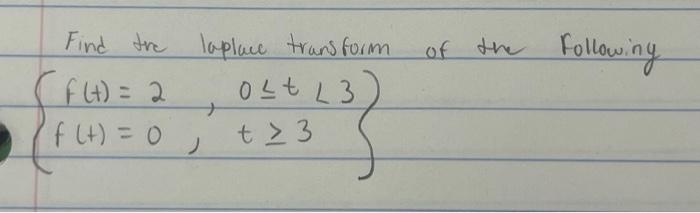 Find the laplace transform of the Following
f(t) = 2 , 0 ≤ t < 3
f(t) = 0 , t ≥ 3